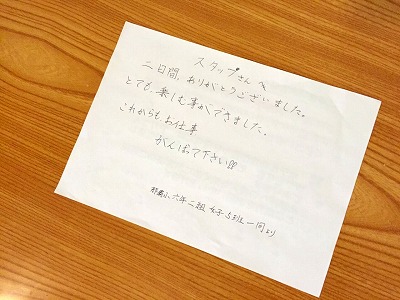 スタッフさんへ
二日間、ありがとうございました。
とても、楽しむ事ができました。
これからも、お仕事
がんばって下さい!!
小六年二組 女子5班一同より